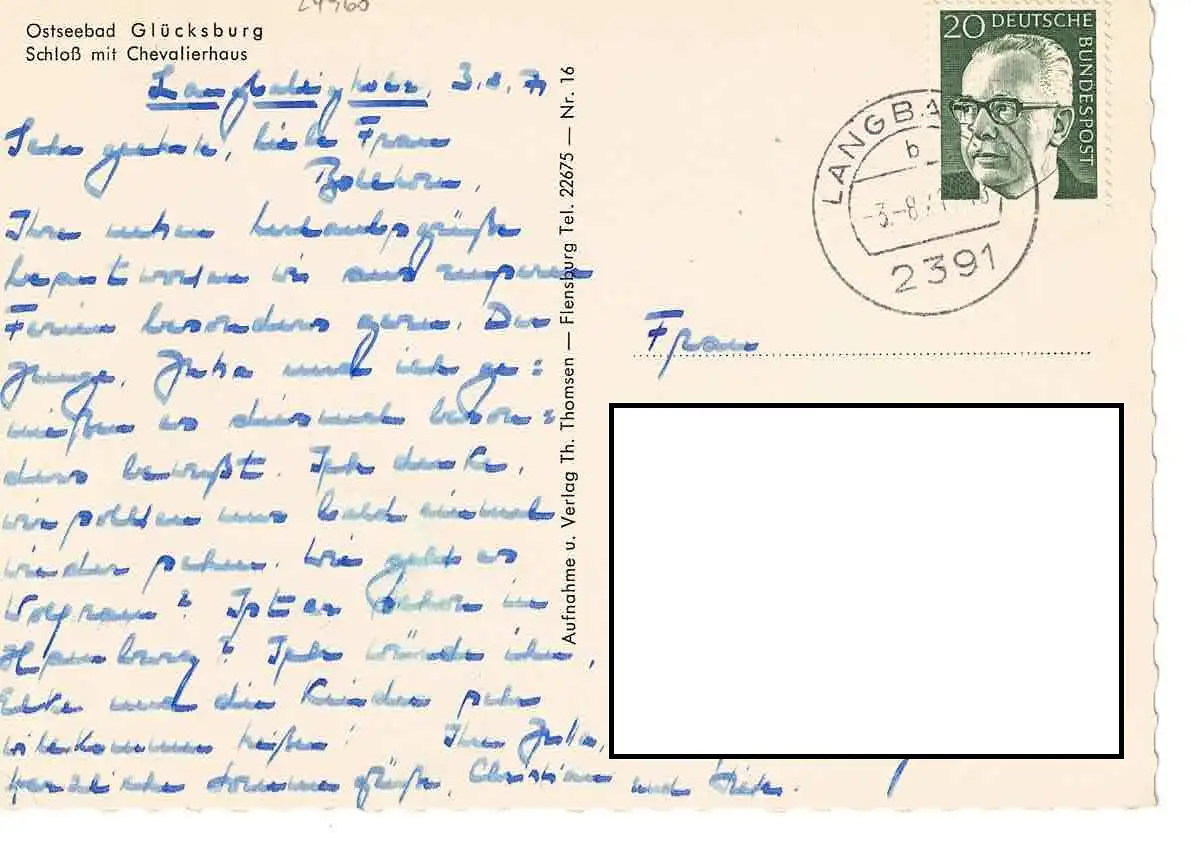 24960
Ostseebad Glücksburg
Schloß mit Chevalierhaus
Langballigholz, 3.8.71
Sehr geehrte, liebe Frau
Ihre Urlaubsgrüße
beantworten wir aus unseren
Ferien besonders gern. Die
Jungs, Jutta und ich ge=
nießen es diesmal beson=
ders bewußt. Ich denke,
wir sollten uns bald einmal
wieder sehen. Wie geht es
Wolfram? Ist er schon in
Ich würde ihn,
Elke und die Kinder sehr
willkommen heißen! Ihre
herzliche Sommergrüße, Christian und
Aufnahme u. Verlag Th. Thomsen — Flensburg Tel. 22675 — Nr. 16
20 DEUTSCHE
BUNDESPOST
LANGBA
b
-3.-8.71
2391
Frau